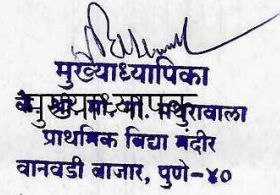 मुख्याध्यापिका
मथुरावाला
प्राथमिक विद्या मंदीर
वानवडी बाजार, पुणे-४०